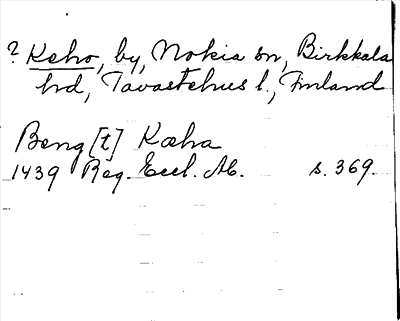 ? Keho, by, Nokia sn, Birkkala
hd, Tavastehus l., Finland
Beng [t] Kæha
1439 Reg. Eccl. Ab. s. 369.